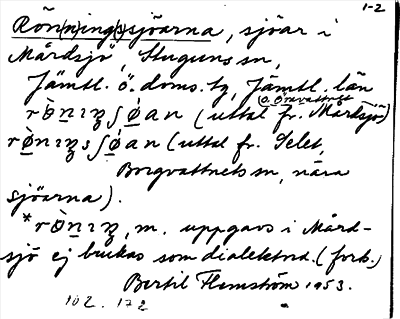 1-2
Rön(n)ing(s)sjöarna, sjöar i
Mårdsjö, Stuguns sn,
Jämtl. ö. doms. tg, Jämtl. län
(uttal fr. Mårdsjö)
o. Öravattnet
(uttal fr. Selet,
Borgvattnets sn, nära
sjöarna).
m. uppgavs i Mård-
sjö ej brukas som dialektord. (forts.)
Bertil Flemström 1953.
102. 172